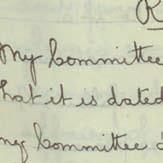 R
My Committee
that it is dated
my Committee